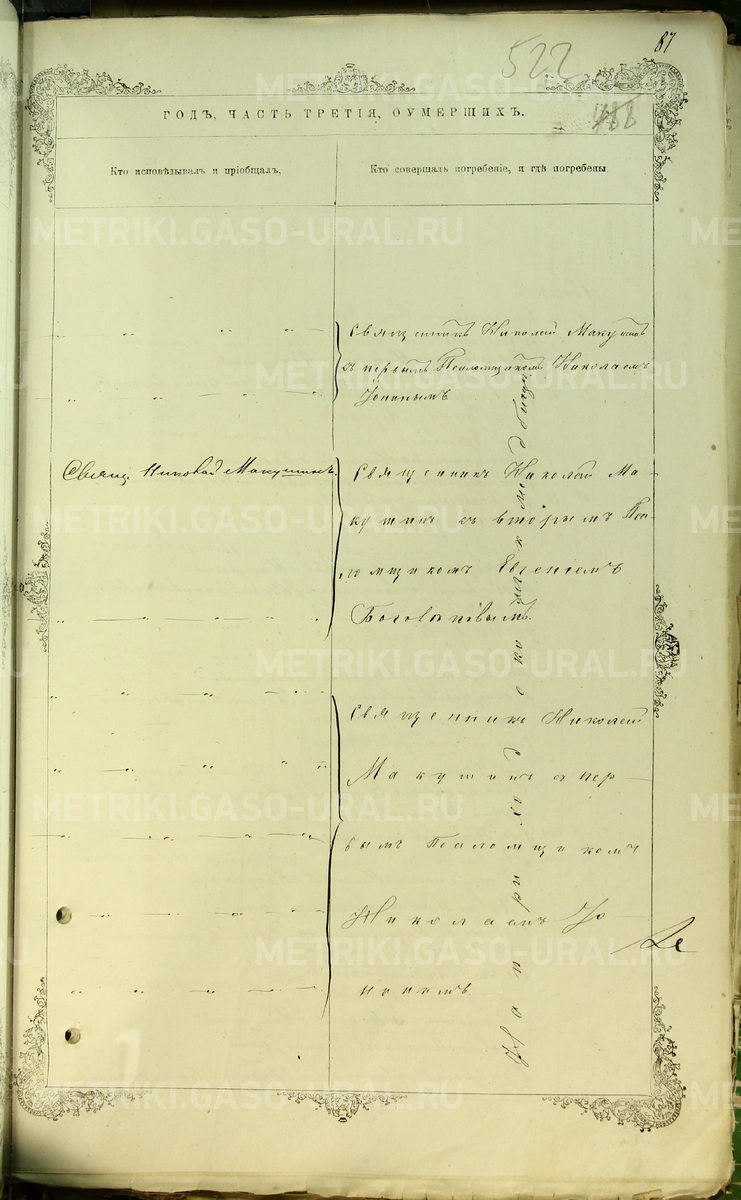 87
522
488
ГОДЪ, ЧАСТЬ ТРЕТІЯ, ОУМЕРШИХЪ.
Кто исповѣдывалъ и пріобщалъ,
Кто совершалъ погребеніе, и гдѣ погребены
Священникъ Николай Макушинъ
съ первымъ Псаломщикомъ Николаемъ
Іонинымъ
Свящ. Николай Макушинъ.
Священникъ Николай Ма-
кушинъ съ вторымъ Пса-
ломщикомъ Евгеніемъ
Священникъ Николай
Макушинъ съ пер-
вымъ Псаломщикомъ
Николаемъ Іо-
нинымъ
На приходскомъ кладбищѣ
METRIKI.GASO-URAL.RU